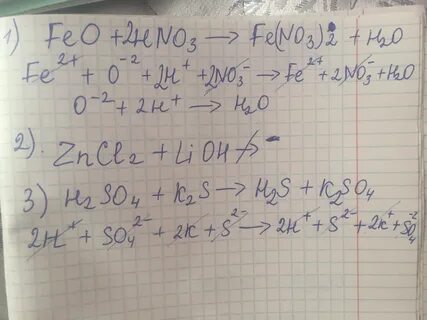 1) FeO + 2HNO₃ → Fe(NO₃)2 + H₂O
Fe²⁺ + O⁻² + 2H⁺ + 2NO₃⁻ → Fe²⁺ + 2NO₃⁻ + H₂O
O⁻² + 2H⁺ → H₂O
2). ZnCl₂ + LiOH ↛ –
3) H₂SO₄ + K₂S → H₂S + K₂SO₄
2H⁺ + SO₄²⁻ + 2K + S²⁻ → 2H⁺ + S²⁻ + 2K⁺ + SO₄⁻²